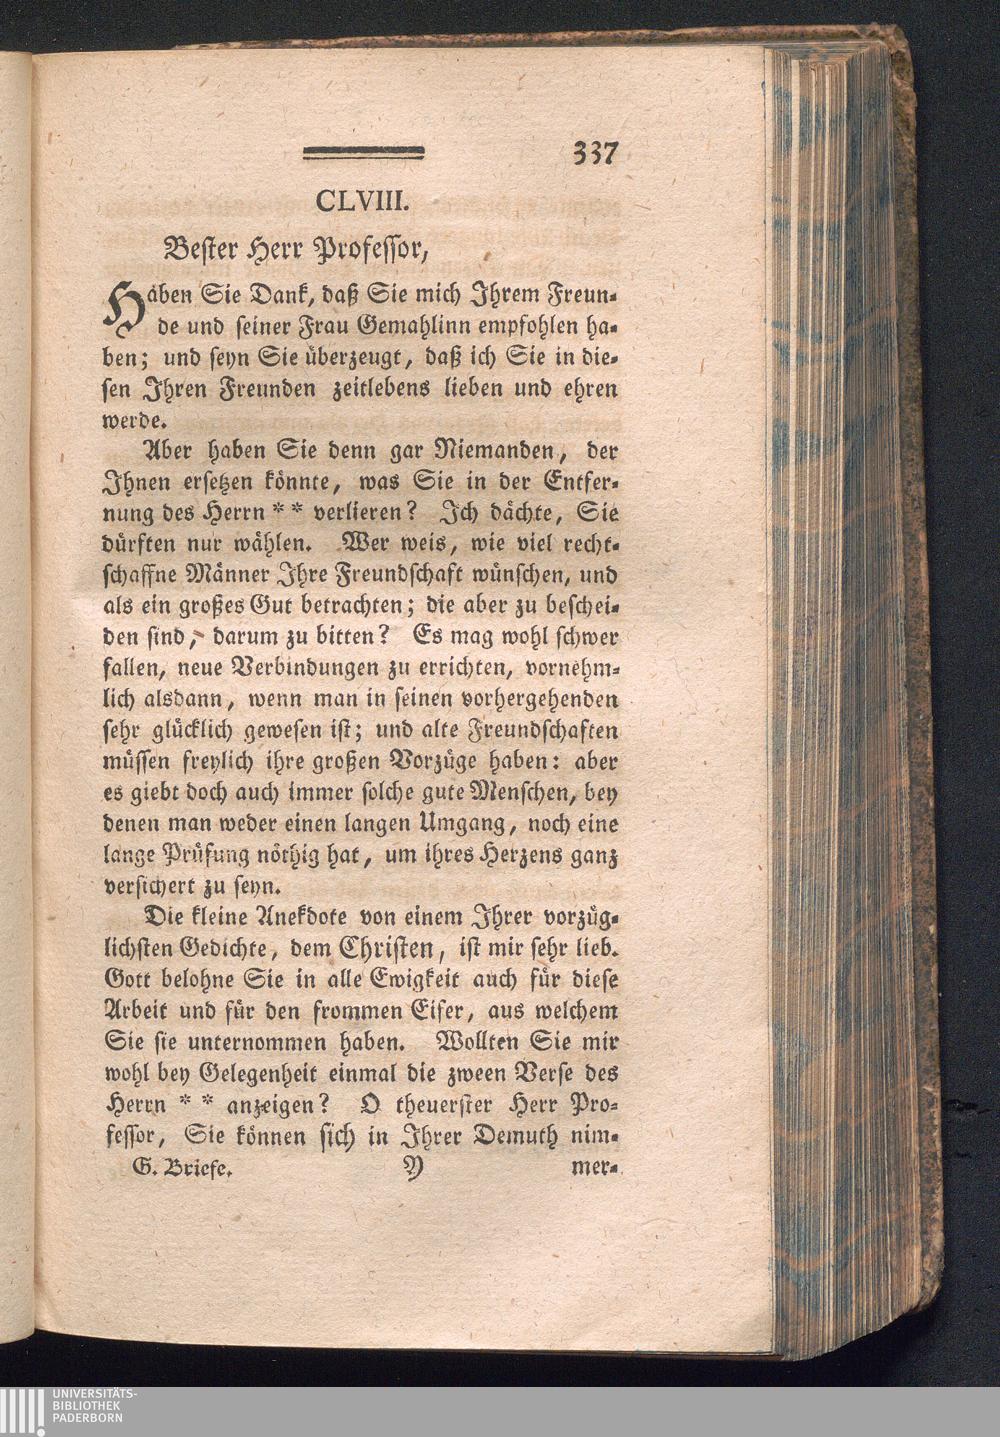 337
CLVIII.
Bester Herr Professor,
Haben Sie Dank, daß Sie mich Ihrem Freun-
de und seiner Frau Gemahlinn empfohlen ha-
ben; und seyn Sie überzeugt, daß ich Sie in die-
sen Ihren Freunden zeitlebens lieben und ehren
werde.
Aber haben Sie denn gar Niemanden, der
Ihnen ersetzen könnte, was Sie in der Entfer-
nung des Herrn * * verlieren? Ich dächte, Sie
dürften nur wählen. Wer weis, wie viel recht-
schaffne Männer Ihre Freundschaft wünschen, und
als ein großes Gut betrachten; die aber zu beschei-
den sind, darum zu bitten? Es mag wohl schwer
fallen, neue Verbindungen zu errichten, vornehm-
lich alsdann, wenn man in seinen vorhergehenden
sehr glücklich gewesen ist; und alte Freundschaften
müssen freylich ihre großen Vorzüge haben: aber
es giebt doch auch immer solche gute Menschen, bey
denen man weder einen langen Umgang, noch eine
lange Prüfung nöthig hat, um ihres Herzens ganz
versichert zu seyn.
Die kleine Anekdote von einem Ihrer vorzüg-
lichsten Gedichte, dem Christen, ist mir sehr lieb.
Gott belohne Sie in alle Ewigkeit auch für diese
Arbeit und für den frommen Eifer, aus welchem
Sie sie unternommen haben. Wollten Sie mir
wohl bey Gelegenheit einmal die zween Verse des
Herrn * * anzeigen? O theuerster Herr Pro-
fessor, Sie können sich in Ihrer Demuth nim-
G. Briefe. Y mer-
UNIVERSITÄTS-
BIBLIOTHEK
PADERBORN